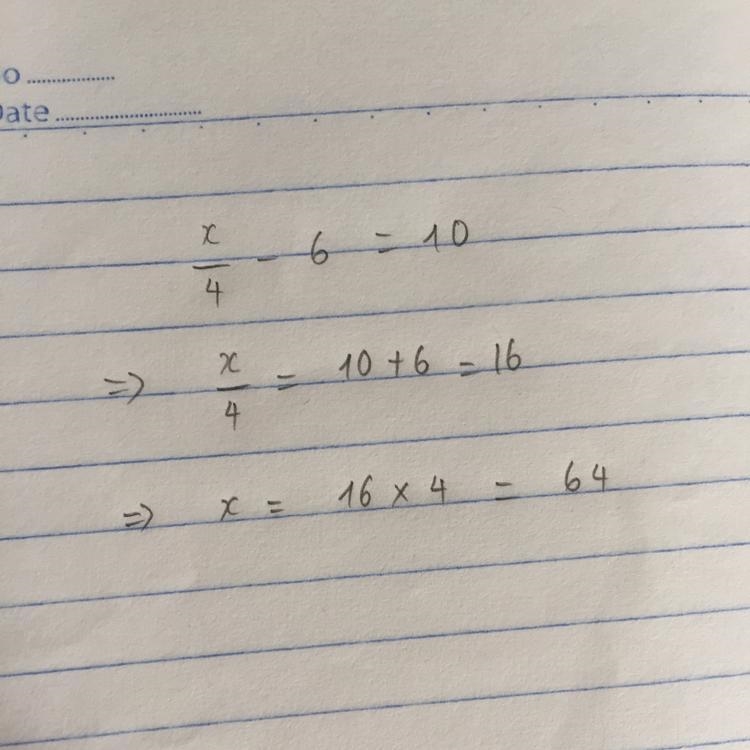 o ................
Date ............................
x/4 - 6 = 10
=> x/4 = 10 + 6 = 16
=> x = 16 × 4 = 64